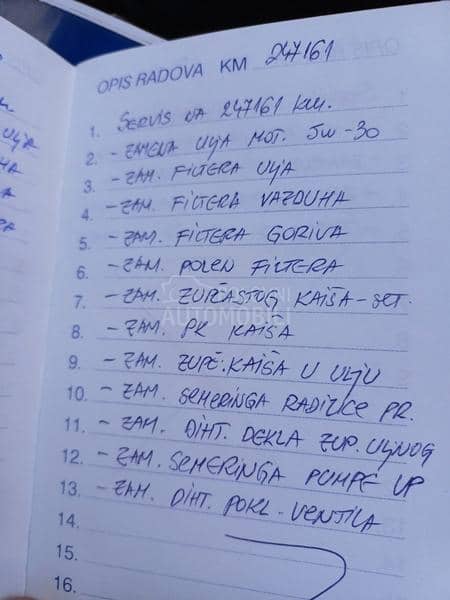 OPIS RADOVA KM 247161
1. SERVIS NA 247161 KM.
2. - ZAMENA ULJA MOT. 5W-30
3. - ZAM. FILTERA ULJA
4. - ZAM. FILTERA VAZDUHA
5. - ZAM. FILTERA GORIVA
6. - ZAM. POLEN FILTERA
7. - ZAM. ZUPČASTOG KAIŠA-SET.
8. - ZAM. PK KAIŠA
9. - ZAM. ZUPČ. KAIŠA U ULJU
10. - ZAM. SEMERINGA RADILICE PR.
11. - ZAM. DIHT. DEKLA ZUP. ULJNOG
12. - ZAM. SEMERINGA PUMPE VP
13. - ZAM. DIHT. POKL. VENTILA
14.
15.
16.
AUTOMOBILI
ULJA